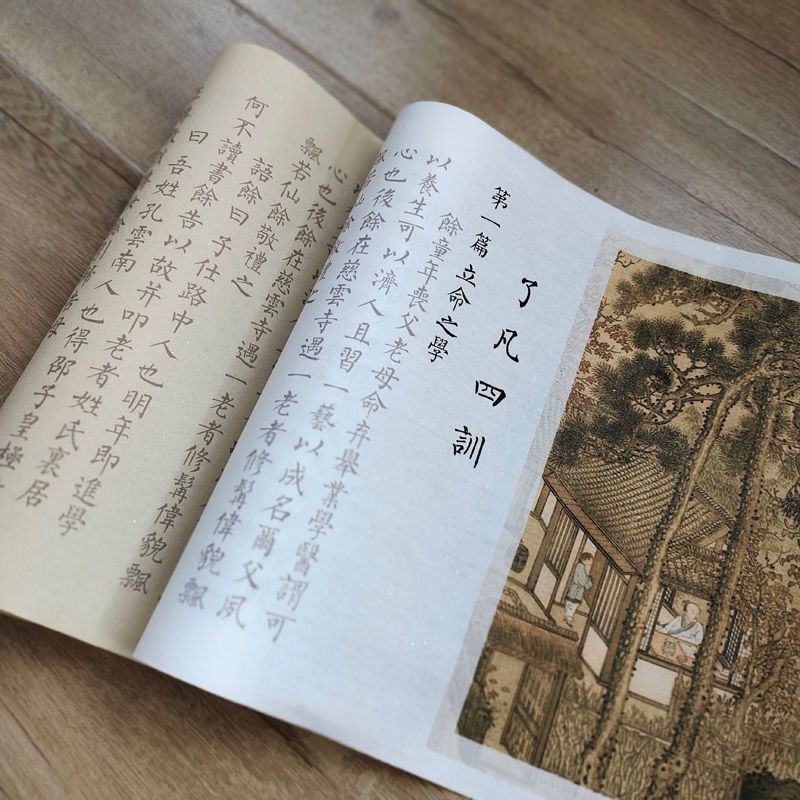 了凡四訓
第一篇立命之學
餘童年喪父老母命弃舉業學醫謂可
以養生可以濟人且習一藝以成名爾父夙
心也後餘在慈雲寺遇一老者修髯偉貌飄
心也後餘在慈雲寺遇一老者修髯偉貌飄
飄若仙餘敬禮之
語餘曰子仕路中人也明年即進學
何不讀書餘告以故并叩老者姓氏裏居
曰吾姓孔雲南人也得邵子皇極